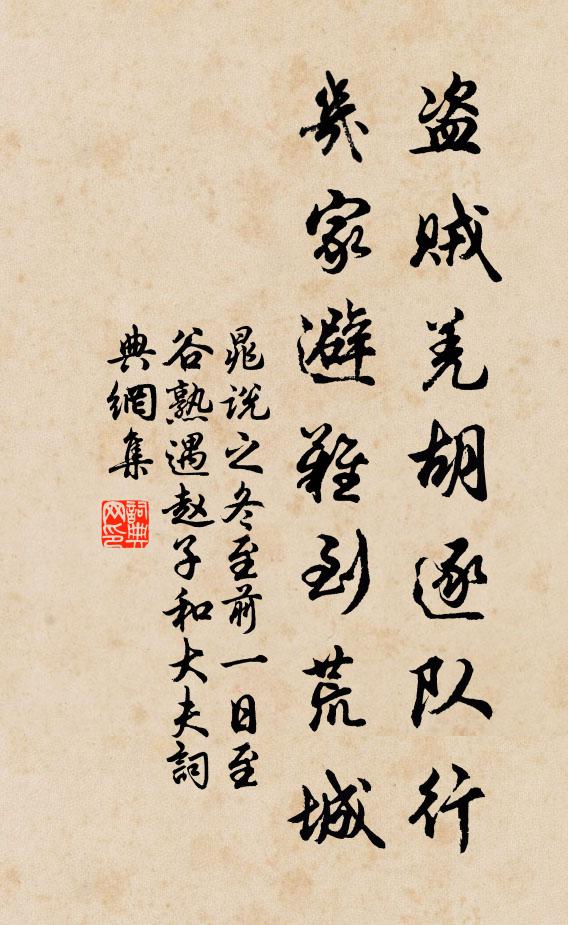 盗贼羌胡逐队行
几家避难到荒城
晁说之冬至前一日至
谷熟遇赵子和大夫詞
典網集
詞典网印